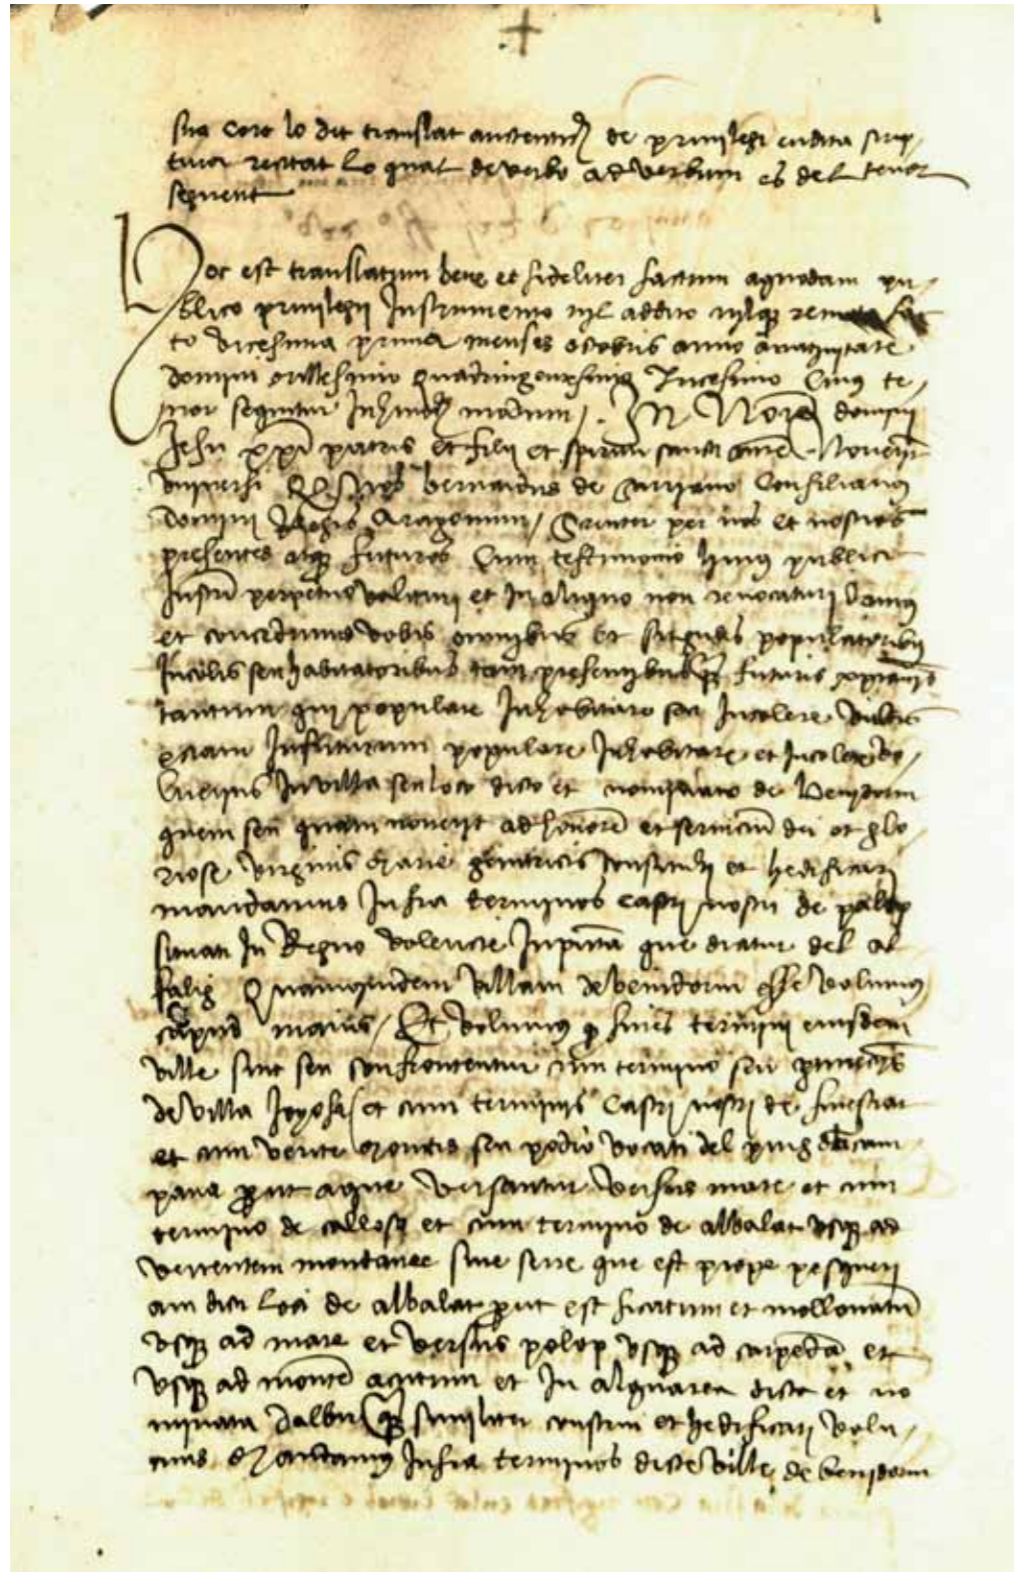 sua cort lo dit translat autentich de privilegi en dita scrip
tura recitat lo qual de verbo ad verbum es del tenor
seguent
Hoc est translatum bene et fideliter factum a quodam pu
blico privilegii Instrumento nil addito nilque remoto fac
to vicesima prima menses octobris anno a nativitate
domini millesimo quadringentesimo Tricesimo Cuius te
nor sequitur In hunc modum / . In Nore domini
Jesu xpi patris et filii et spiritu sancti amen Noverint
universi Q Nos bernardus de Sarriano Consiliarius
domini Regis Aragonum / Gratiter per nos et nostros
presentes atque futuros Cum testimonio huius publici
Instri perpetuo valituri et In aliquo non revocaturi Damus
et concedimus vobis omnibus et singulis populatoribus
Incolis seu habitatoribus tam presentibus q futuris xpianis
tantum qui populare Inhabitare seu Incolere
etiam Infuturum populare Inhabitare et Incolere vo
lueritis In villa seu loco dicto et nominato de Benidorm
quem seu quam noveritis ad honore et servicium dei et glo
riose virginis Marie genitricis construi et hedificari
mandamus Infra terminos castri nostri de palop
situati In Regno Valencie In que dicatur del al
falig Quamquidem villam de benidorm esse volumus
caput maius / Et volumus q fines termini eiusdem
ville sint seu confrontentur cum termino seu
de villa Joyosa et cum terminis Castri nostri de finestrat
et cum vertente Montis seu podio vocati del puig cam
pana prout aque versantur versus mare et cum
termino de callosa et cum termino de albalat usque ad
vertentem montanee sive serre que est prope pesqueri
am dicti loci de albalat prout est ficatum et mollonatum
usque ad mare et versus polop usque ad carpeda et
usque ad monte acutum et In alquarea dicta et no
minata dalbir que similiter construi et hedificari volu
mus Mandamus Infra terminos dicte ville de benidorm